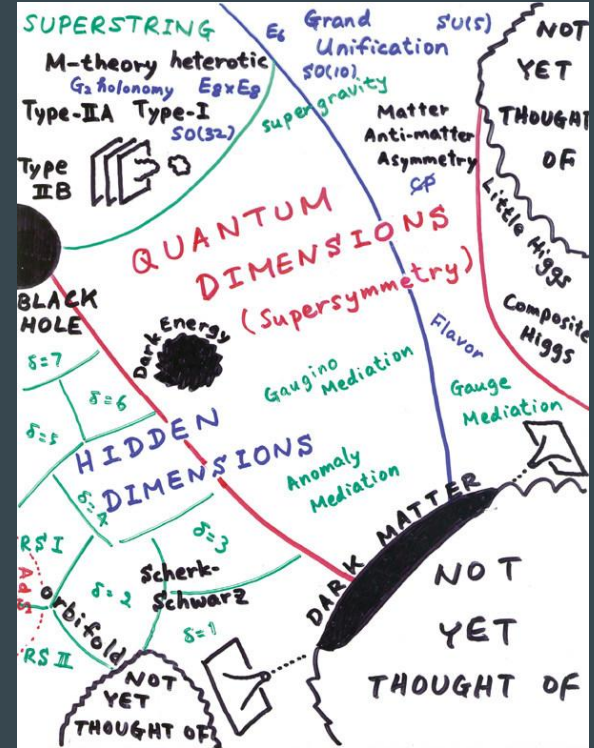 SUPERSTRING
M-theory heterotic
G₂ holonomy E₈×E₈
Type-ⅡA Type-I
SO(32)
Type
ⅡB
E₆ Grand SU(5)
Unification
SO(10)
supergravity
Matter
Anti-matter
Asymmetry
CP
NOT
YET
THOUGHT
OF
Little Higgs
Composite
Higgs
QUANTUM
DIMENSIONS
(Supersymmetry)
BLACK
HOLE
Dark Energy
Flavor
Gaugino
Mediation
Gauge
Mediation
Anomaly
Mediation
δ=7
δ=6
δ=5
HIDDEN
DIMENSIONS
δ=4
δ=3
RS I
AdS
δ=2
Scherk-
Schwarz
orbifold
δ=1
RS Ⅱ
DARK MATTER
NOT
YET
THOUGHT OF
NOT
YET
THOUGHT OF